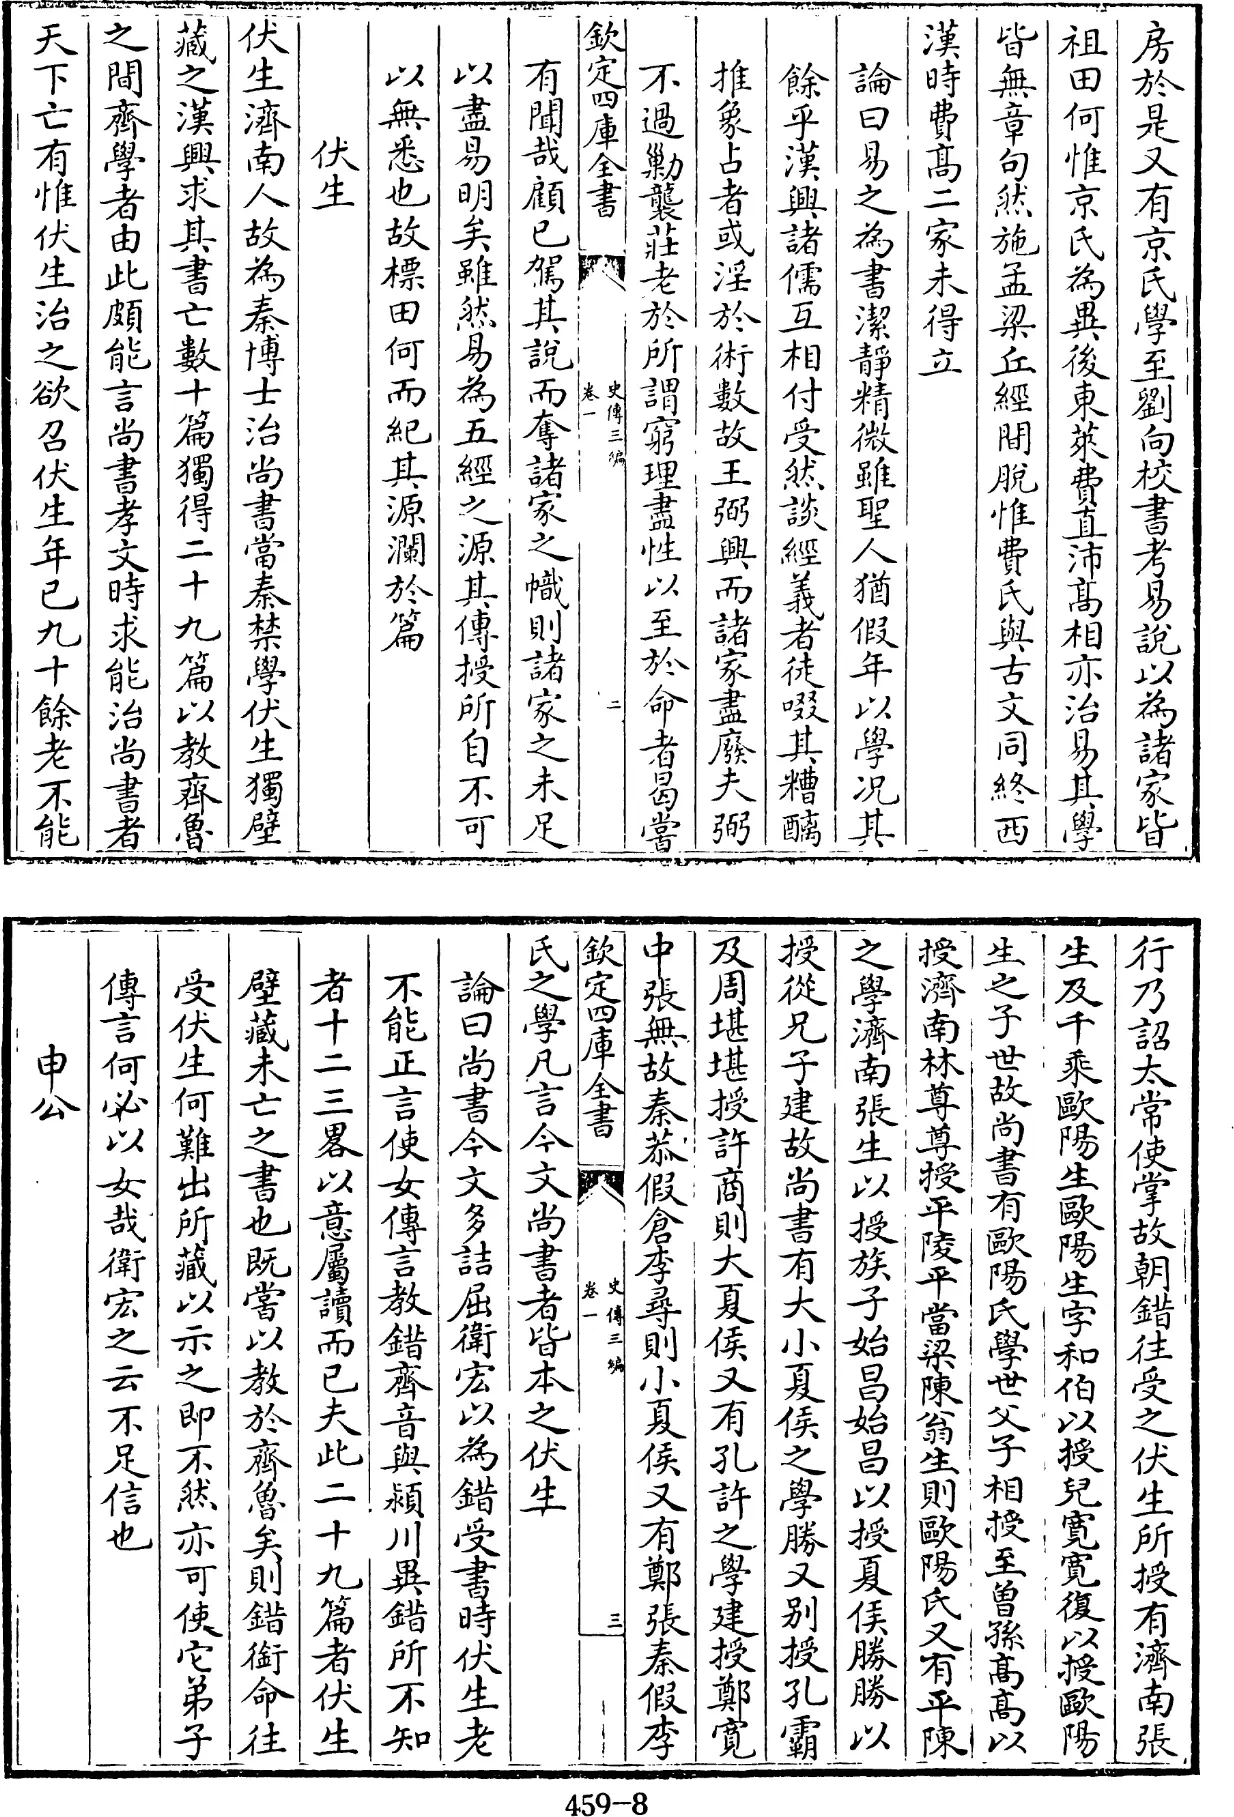 房於是又有京氏學至劉向校書考易說以為諸家皆
祖田何惟京氏為異後東萊費直沛高相亦治易其學
皆無章句然施孟梁丘經間脫惟費氏與古文同終西
漢時費高二家未得立
論曰易之為書潔靜精微雖聖人猶假年以學况其
餘乎漢興諸儒互相付受然談經義者徒啜其糟醨
推象占者或淫於術數故王弼興而諸家盡廢夫弼
不過勦襲莊老於所謂窮理盡性以至於命者曷嘗
欽定四庫全書 史傳三編 卷一 二
有聞哉顧已駕其說而奪諸家之幟則諸家之未足
以盡易明矣雖然易為五經之源其傳授所自不可
以無悉也故標田何而紀其源瀾於篇
伏生
伏生濟南人故為秦博士治尚書當秦禁學伏生獨壁
藏之漢興求其書亡數十篇獨得二十九篇以教齊魯
之間齊學者由此頗能言尚書孝文時求能治尚書者
天下亡有惟伏生治之欲召伏生年已九十餘老不能
行乃詔太常使掌故朝錯往受之伏生所授有濟南張
生及千乘歐陽生歐陽生字和伯以授兒寬寬復以授歐陽
生之子世故尚書有歐陽氏學世父子相授至曾孫高高以
授濟南林尊尊授平陵平當梁陳翁生則歐陽氏又有平陳
之學濟南張生以授族子始昌始昌以授夏侯勝勝以
授從兄子建故尚書有大小夏侯之學勝又别授孔霸
及周堪堪授許商則大夏侯又有孔許之學建授鄭寛
中張無故秦恭假倉李尋則小夏侯又有鄭張秦假李
欽定四庫全書 史傳三編 卷一 三
氏之學凡言今文尚書者皆本之伏生
論曰尚書今文多詰屈衛宏以為錯受書時伏生老
不能正言使女傳言教錯齊音與潁川異錯所不知
者十二三畧以意屬讀而已夫此二十九篇者伏生
壁藏未亡之書也既嘗以教於齊魯矣則錯銜命往
受伏生何難出所藏以示之即不然亦可使它弟子
傳言何必以女哉衛宏之云不足信也
申公
459-8